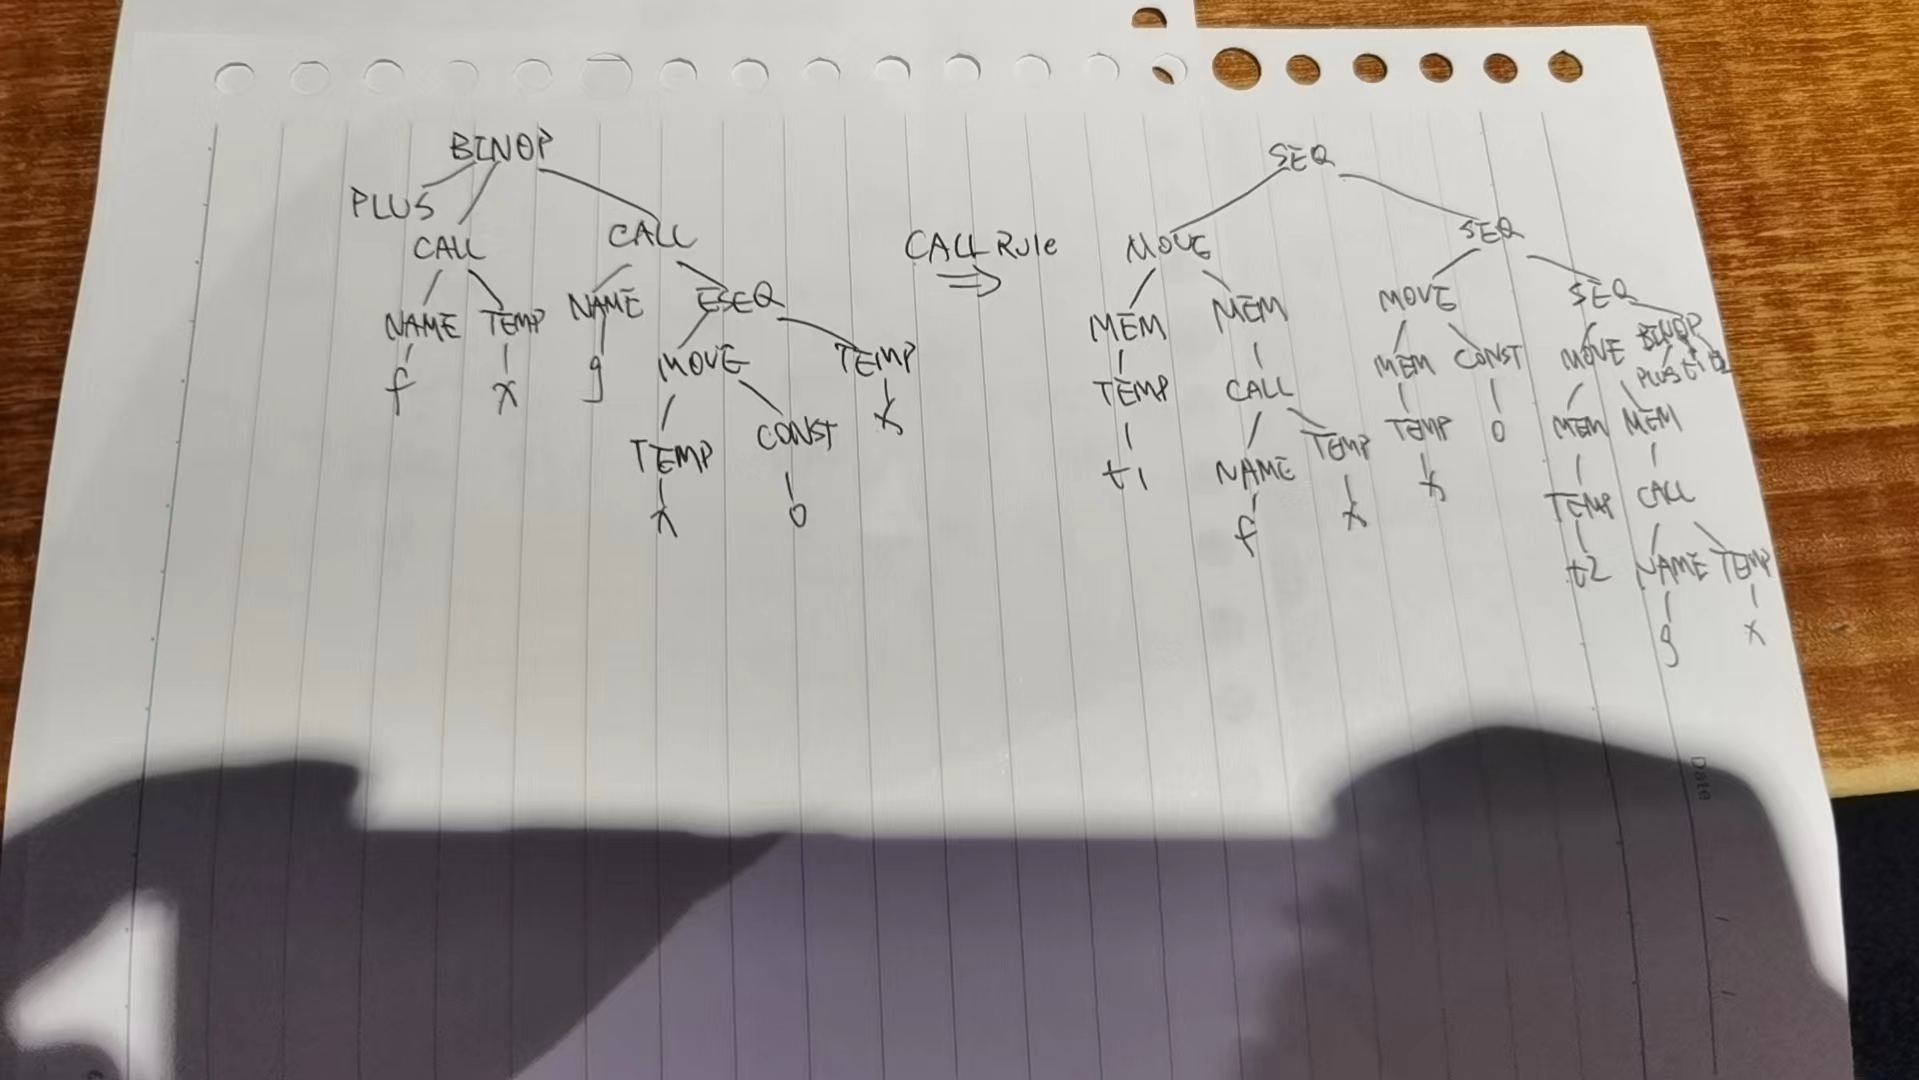 BINOP
PLUS
CALL CALL
NAME TEMP NAME ESEQ
f x g MOVE TEMP
x
TEMP CONST
x 0
CALL Rule
⇒
SEQ
MOVE SEQ
MEM MEM MOVE SEQ
TEMP CALL MEM CONST MOVE BINOP
PLUS t1 t2
t1 NAME TEMP TEMP 0 MEM MEM
f x x TEMP CALL
t2 NAME TEMP
g x
Date